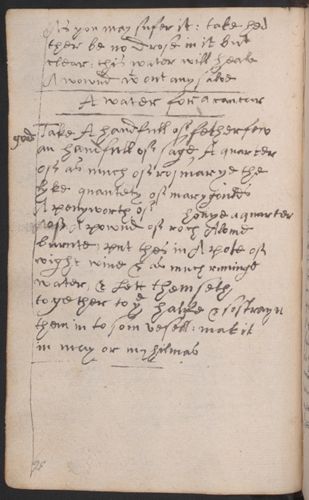 As you may sufer it: take hed
ther be no Drose in it but
clear: this water will heale
A wound wt out any salve
A water for a cancur
good
Take A handfull of fetherfew
an handfull of sage A quarter
of as much of rosmarye the
lyke quantety of marygoulds
A penyworth of honye a quarter
of A pownd of roch Alome
burnte: put thes in A pote of
wight wine & as much runinge
water, & let them seth
together to ye halfe & so strayn
them in to som vesell: make it
in may or myhilmas